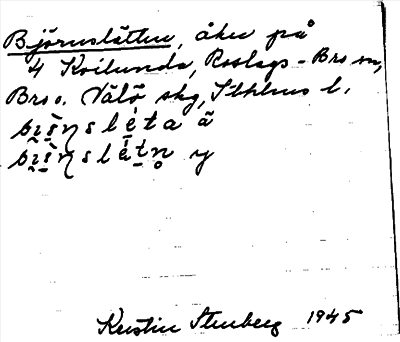 Björnslätten, åker på
4 Kvilunda, Roslags-Bro sn,
Bro o. Vätö skg, Sthlms l.
ä
y
Kerstin Stenberg 1945